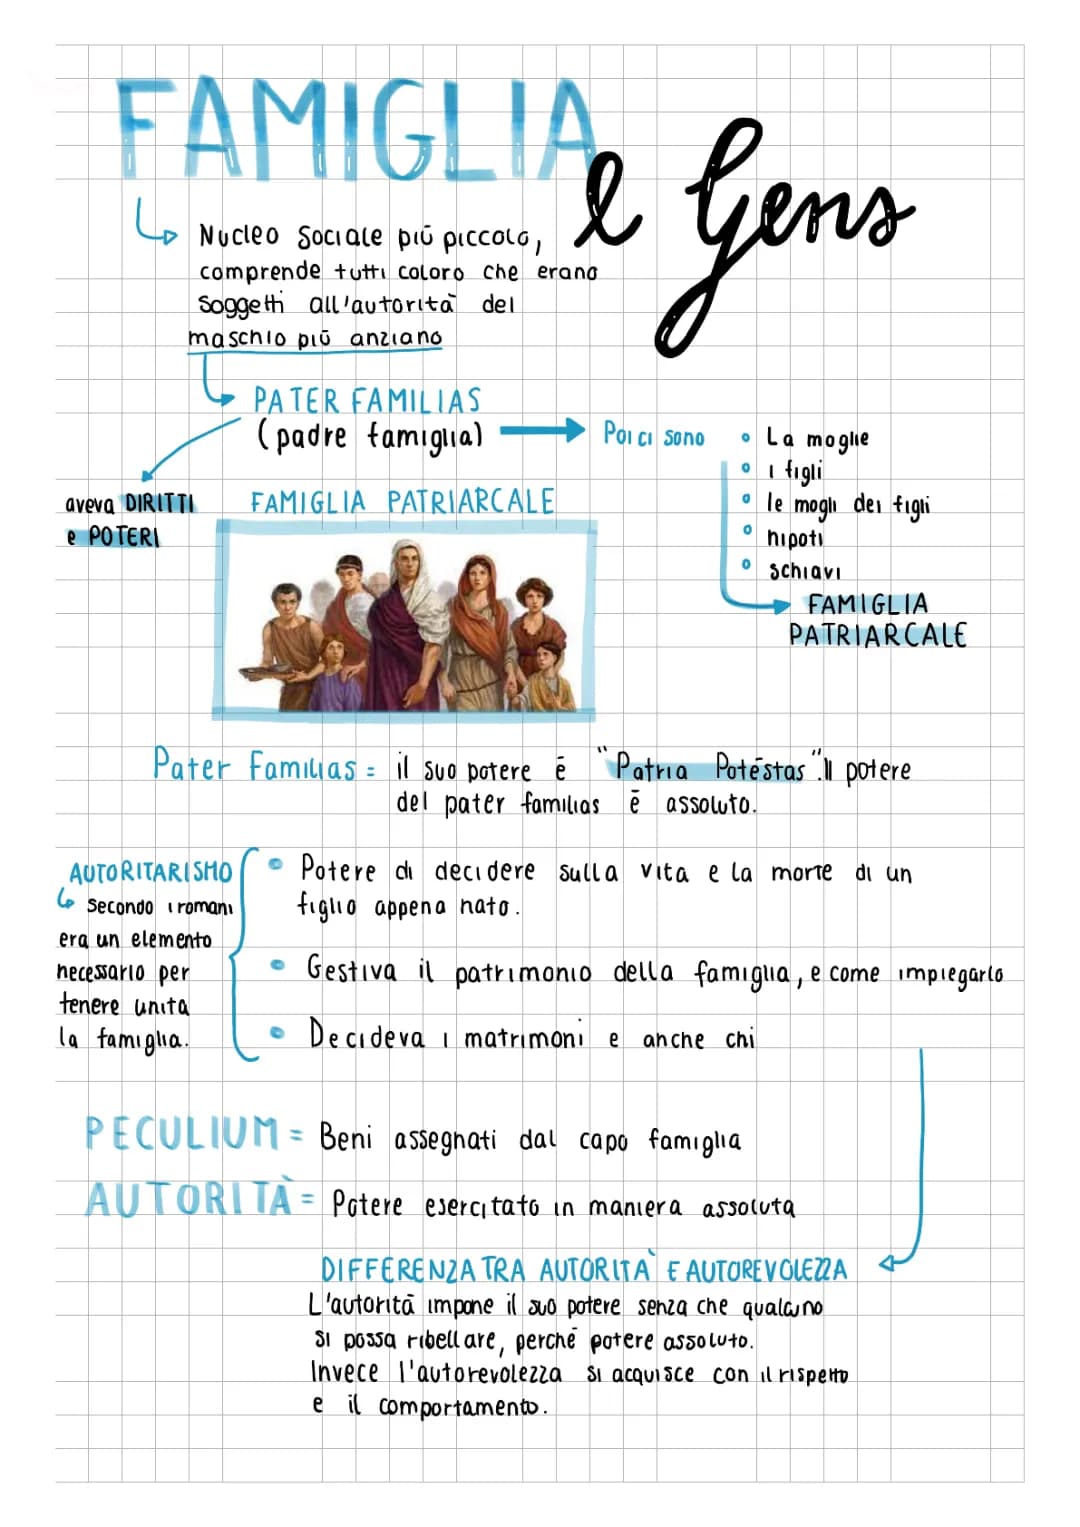 FAMIGLIA
e Gens
Nucleo sociale più piccolo,
comprende tutti coloro che erano
soggetti all'autorità del
maschio più anziano
PATER FAMILIAS
(padre famiglia)
Poi ci sono
La moglie
i figli
le mogli dei figli
nipoti
schiavi
FAMIGLIA
PATRIARCALE
aveva DIRITTI
e POTERI
FAMIGLIA PATRIARCALE
Pater Familias = il suo potere è "Patria Potestas". Il potere
del pater familias è assoluto.
AUTORITARISMO
Secondo i romani
era un elemento
necessario per
tenere unita
la famiglia.
Potere di decidere sulla vita e la morte di un
figlio appena nato.
Gestiva il patrimonio della famiglia, e come impiegarlo
Decideva i matrimoni e anche chi
PECULIUM = Beni assegnati dal capo famiglia
AUTORITÀ = Potere esercitato in maniera assoluta
DIFFERENZA TRA AUTORITÀ E AUTOREVOLEZZA
L'autorità impone il suo potere senza che qualcuno
si possa ribellare, perché potere assoluto.
Invece l'autorevolezza si acquisce con il rispetto
e il comportamento.